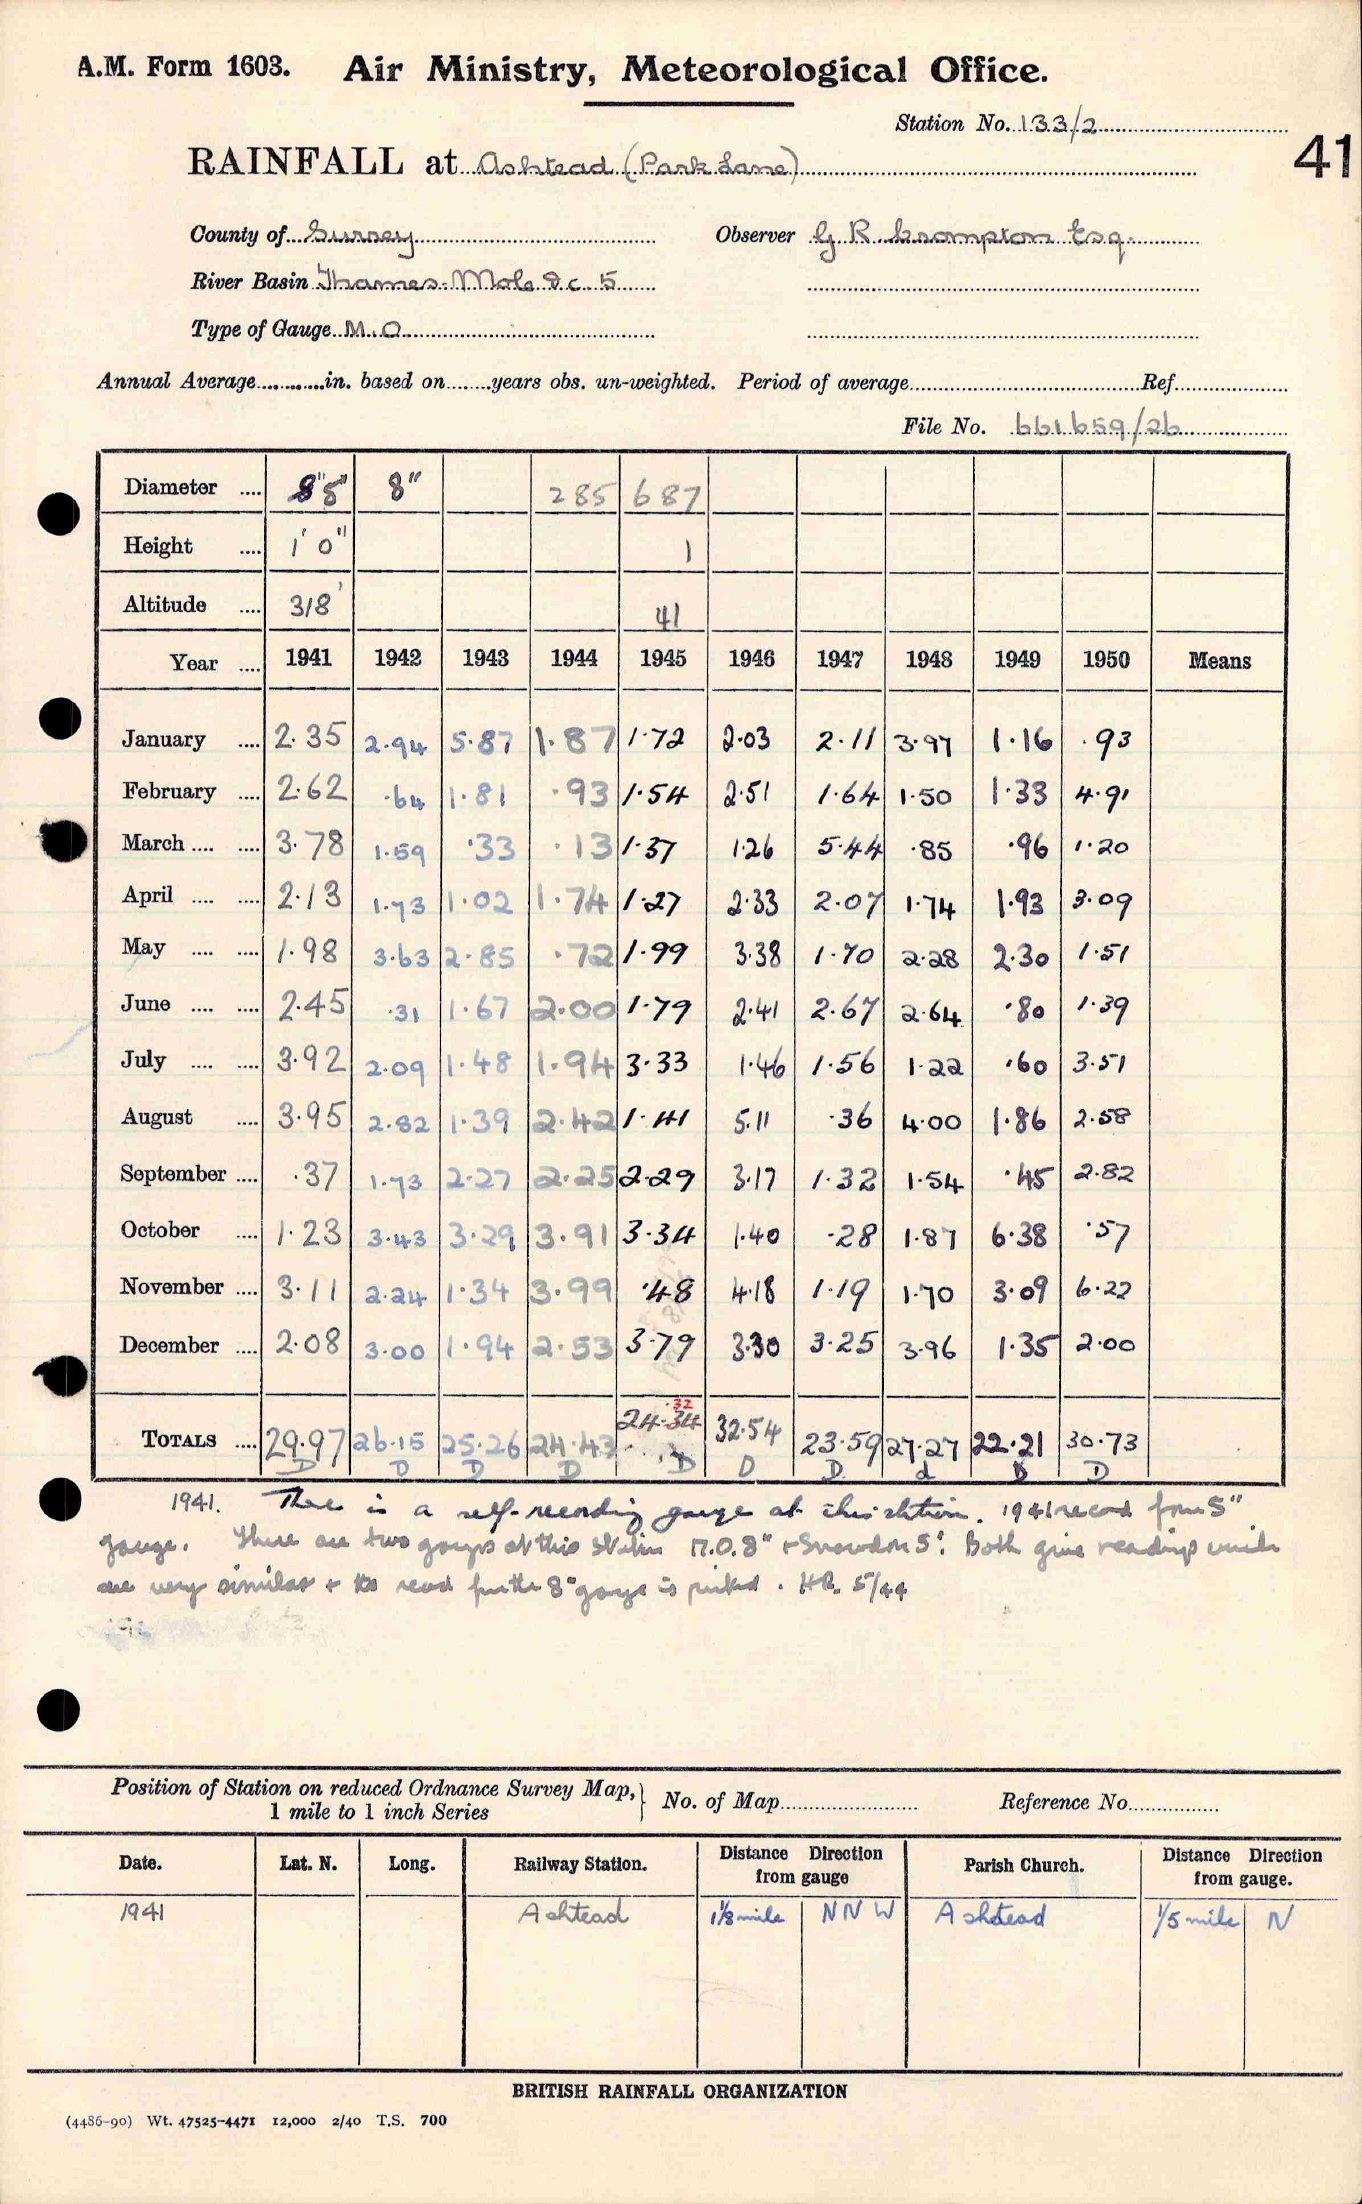 A.M. Form 1603. Air Ministry, Meteorological Office.
Station No. 133/2
41
RAINFALL at Ashtead (Park Lane)
County of Surrey Observer G R Crompton Esq.
River Basin Thames-Mole &c 5
Type of Gauge M.O
Annual Average............in. based on........years obs. un-weighted. Period of average Ref.
File No. 661659/26
Diameter .... 5" 8" 285 687
Height .... 1' 0" 1
Altitude .... 318' 41
Year .... 1941 1942 1943 1944 1945 1946 1947 1948 1949 1950 Means
January .... 2.35 2.94 5.87 1.87 1.72 2.03 2.11 3.97 1.16 .93
February .... 2.62 .64 1.81 .93 1.54 2.51 1.64 1.50 1.33 4.91
March .... .... 3.78 1.59 .33 .13 1.37 1.26 5.44 .85 .96 1.20
April .... .... 2.13 1.73 1.02 1.74 1.27 2.33 2.07 1.74 1.93 3.09
May .... .... 1.98 3.63 2.85 .72 1.99 3.38 1.70 2.28 2.30 1.51
June .... .... 2.45 .31 1.67 2.00 1.79 2.41 2.67 2.64 .80 1.39
July .... .... 3.92 2.09 1.48 1.94 3.33 1.46 1.56 1.22 .60 3.51
August .... 3.95 2.82 1.39 2.42 1.41 5.11 .36 4.00 1.86 2.58
September .... .37 1.73 2.27 2.25 2.29 3.17 1.32 1.54 .45 2.82
October .... 1.23 3.43 3.29 3.91 3.34 1.40 .28 1.87 6.38 .57
November .... 3.11 2.24 1.34 3.99 .48 4.18 1.19 1.70 3.09 6.22
December .... 2.08 3.00 1.94 2.53 3.79 3.30 3.25 3.96 1.35 2.00
.32
TOTALS .... 29.97 26.15 25.26 24.43 24.34 32.54 23.59 27.27 22.21 30.73
D D D D D D D d D D
1941. There is a self-recording gauge at this station. 1941 record from 5"
gauge. There are two gauges at this station M.O. 8" + Snowdon 5". Both give readings which
are very similar + the record for the 8" gauge is printed. HR. 5/44
Position of Station on reduced Ordnance Survey Map, 1 mile to 1 inch Series } No. of Map Reference No.
Date. Lat. N. Long. Railway Station. Distance Direction from gauge Parish Church. Distance Direction from gauge.
1941 Ashtead 1⅛ mile NNW Ashtead 1/5 mile N
BRITISH RAINFALL ORGANIZATION
(4486-90) Wt. 47525-4471 12,000 2/40 T.S. 700